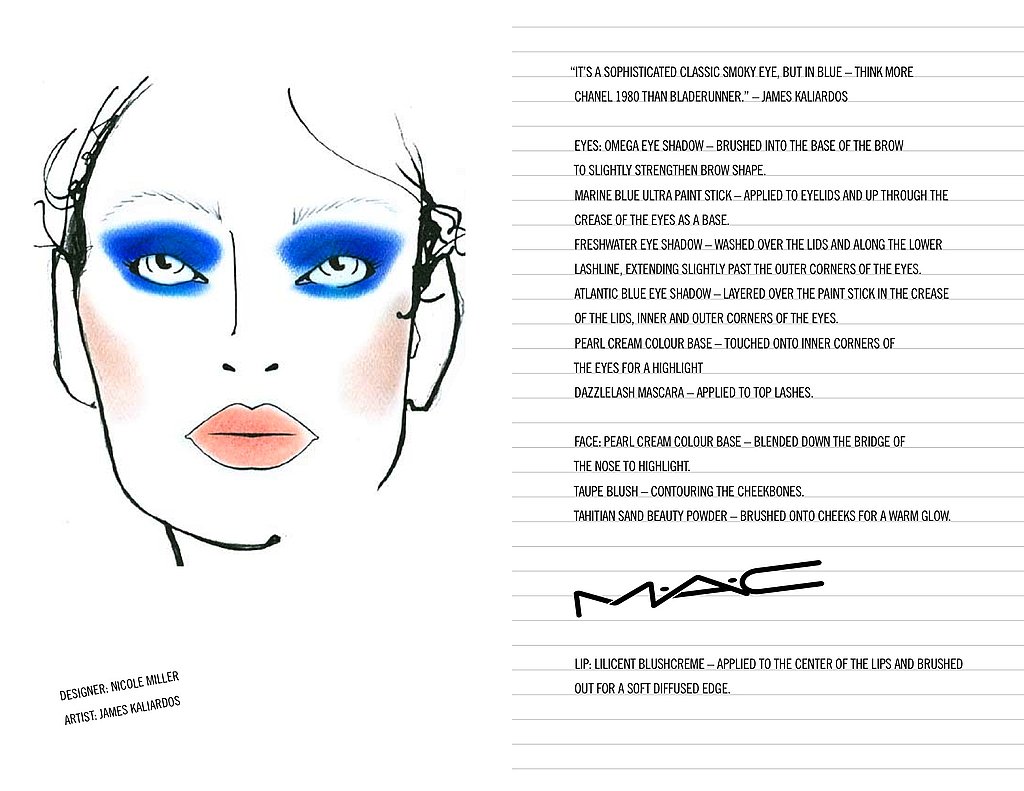 “IT’S A SOPHISTICATED CLASSIC SMOKY EYE, BUT IN BLUE – THINK MORE
CHANEL 1980 THAN BLADERUNNER.” – JAMES KALIARDOS
EYES: OMEGA EYE SHADOW – BRUSHED INTO THE BASE OF THE BROW
TO SLIGHTLY STRENGTHEN BROW SHAPE.
MARINE BLUE ULTRA PAINT STICK – APPLIED TO EYELIDS AND UP THROUGH THE
CREASE OF THE EYES AS A BASE.
FRESHWATER EYE SHADOW – WASHED OVER THE LIDS AND ALONG THE LOWER
LASHLINE, EXTENDING SLIGHTLY PAST THE OUTER CORNERS OF THE EYES.
ATLANTIC BLUE EYE SHADOW – LAYERED OVER THE PAINT STICK IN THE CREASE
OF THE LIDS, INNER AND OUTER CORNERS OF THE EYES.
PEARL CREAM COLOUR BASE – TOUCHED ONTO INNER CORNERS OF
THE EYES FOR A HIGHLIGHT
DAZZLELASH MASCARA – APPLIED TO TOP LASHES.
FACE: PEARL CREAM COLOUR BASE – BLENDED DOWN THE BRIDGE OF
THE NOSE TO HIGHLIGHT.
TAUPE BLUSH – CONTOURING THE CHEEKBONES.
TAHITIAN SAND BEAUTY POWDER – BRUSHED ONTO CHEEKS FOR A WARM GLOW.
M·A·C
LIP: LILICENT BLUSHCREME – APPLIED TO THE CENTER OF THE LIPS AND BRUSHED
OUT FOR A SOFT DIFFUSED EDGE.
DESIGNER: NICOLE MILLER
ARTIST: JAMES KALIARDOS